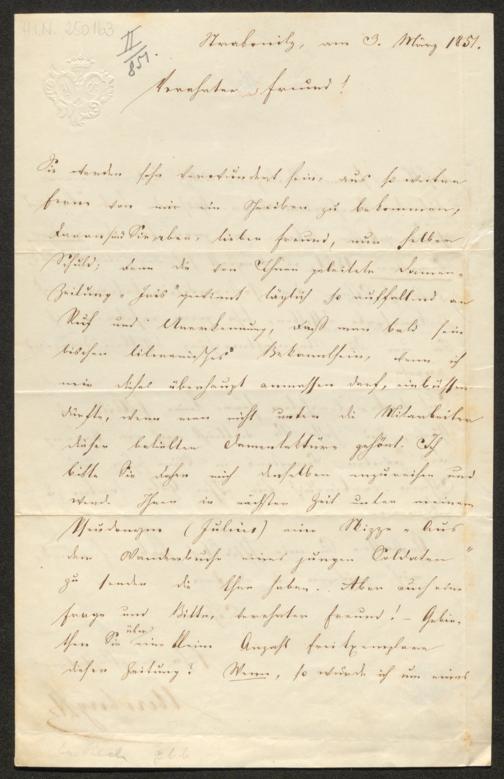 H.I.N. 250163
II
/851.
Strakonitz, am 3. März 1851.
Verehrter Freund!
Sie werden sehr verwundert sein, aus so weiter
Ferne von mir ein Schreiben zu bekommen,
daran sind Sie aber, lieber Freund, nun selber
Schuld; denn die von Ihnen geleitete Damen-
Zeitung „Iris" gewinnt täglich so auffallend an
Ruf und Anerkennung, daß man bald sein
bischen literarisches Bekanntsein, wenn ich
mir dieses überhaupt anmassen darf, einbüssen
dürfte, wenn man nicht unter die Mitarbeiter
dieser beliebten Damenlektüre gehört. Ich
bitte Sie daher mich denselben anzureihen und
werde Ihnen in nächster Zeit unter meinem
Pseudonym (Julius) eine Skizze „Aus
dem Wanderbuche eines jungen Soldaten"
zu senden die Ehre haben. Aber auch eine
Frage und Bitte, verehrter Freund! – Gebie-
then Sie über eine kleine Anzahl Freiexemplare
dieser Zeitung? Wenn, so würde ich um eines